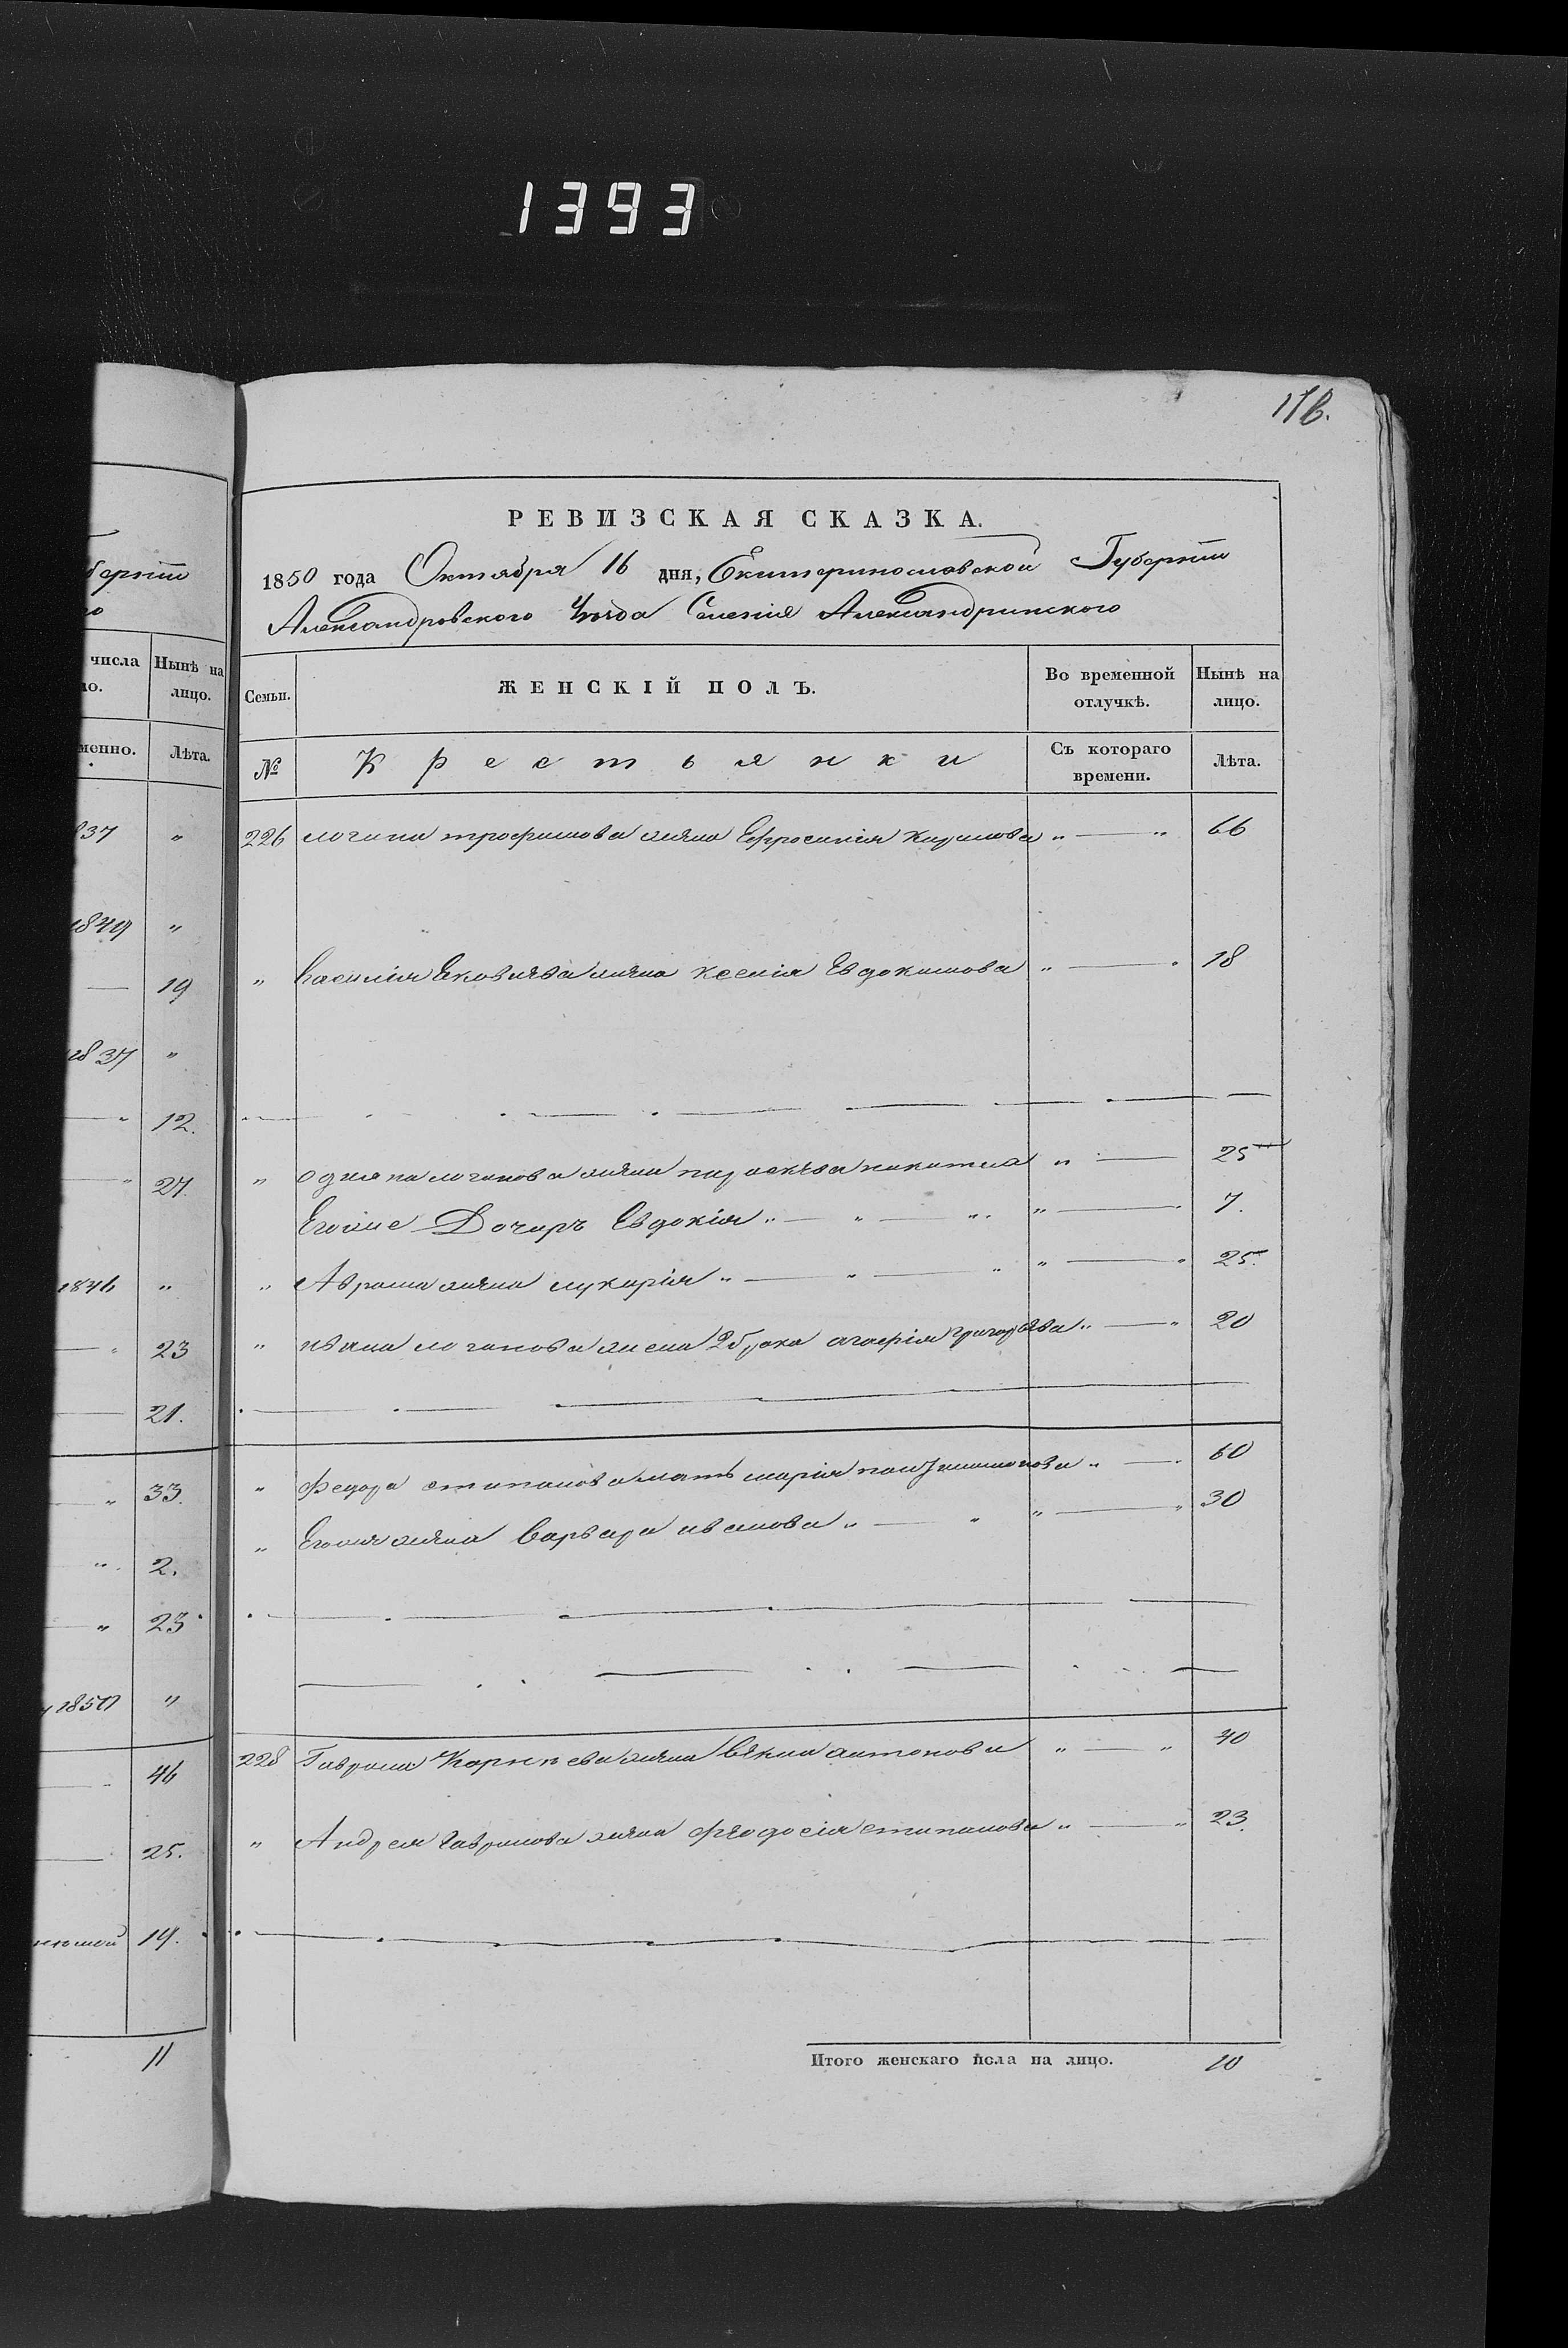 1393
116.
РЕВИЗСКАЯ СКАЗКА.
1850 года Октября 16 дня, Екатеринославской Губерніи
Александровского Уезда Селенія Александринского
Семьи. ЖЕНСКІЙ ПОЛЪ. Во временной отлучкѣ. Нынѣ на лицо.
№ Крестьянки Съ котораго времени. Лѣта.
226 логина трофимова жена Ефросинія Кирилова „ — „ 66
„ василія Яковлева жена Ксенія Евдокимова „ — „ 18
„ логинова жена параскева никитина „ — 25
Егоже Дочирь Евдокія „ — „ — „ „ — 7.
„ Аврама жена лукерія „ — „ — „ „ — „ 25.
„ ивана логинова жена 2 брака агафія григорьева „ — „ 20
„ федора степанова мать марія „ — 60
„ Егожа жена варвара иванова „ — „ „ — „ 30
228 Гаврила Карпьева жена антонова „ — „ 40
„ Андрея Гаврилова жена феодосія степанова „ — „ 23.
Итого женскаго пола на лицо. 10
берніи
числа Нынѣ на
ло. лицо.
менно. Лѣта.
837 „
1849 „
— 19
1837 „
— „ 12.
„ 27.
1846 „
— „ 23
— 21.
„ 33.
„ 2.
„ 23
1850 „
— 46
— 25.
19.
11